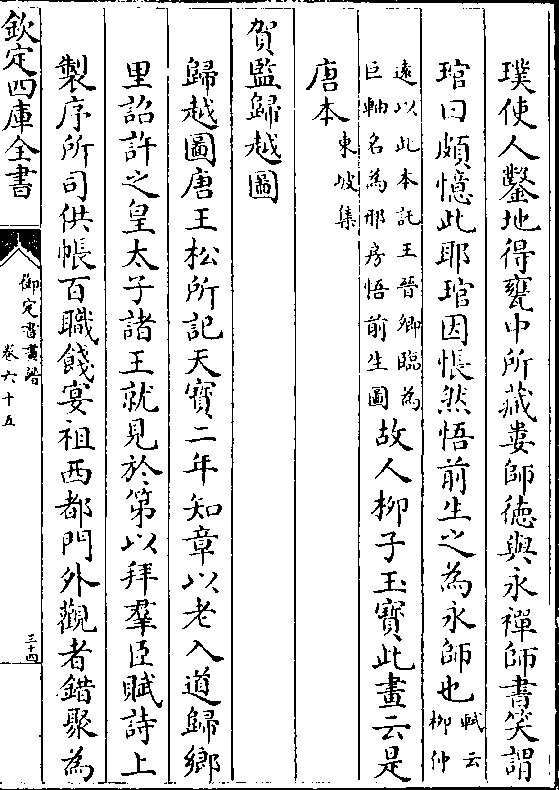 璞使人鑿地得甕中所藏婁師徳與永禪師書笑謂
琯曰頗憶此耶琯因悵然悟前生之為永師也軾云柳仲
逺以此本託王晉卿臨為巨軸名為邢房悟前生圖故人柳子玉寳此畫云是
唐本東坡集
賀監歸越圖
歸越圖唐王松所記天寳二年知章以老入道歸鄉
里詔許之皇太子諸王就見於第以拜羣臣賦詩上
製序所司供帳百職餞宴祖西都門外觀者錯聚為
欽定四庫全書
御定書畫譜
卷六十五
三十四